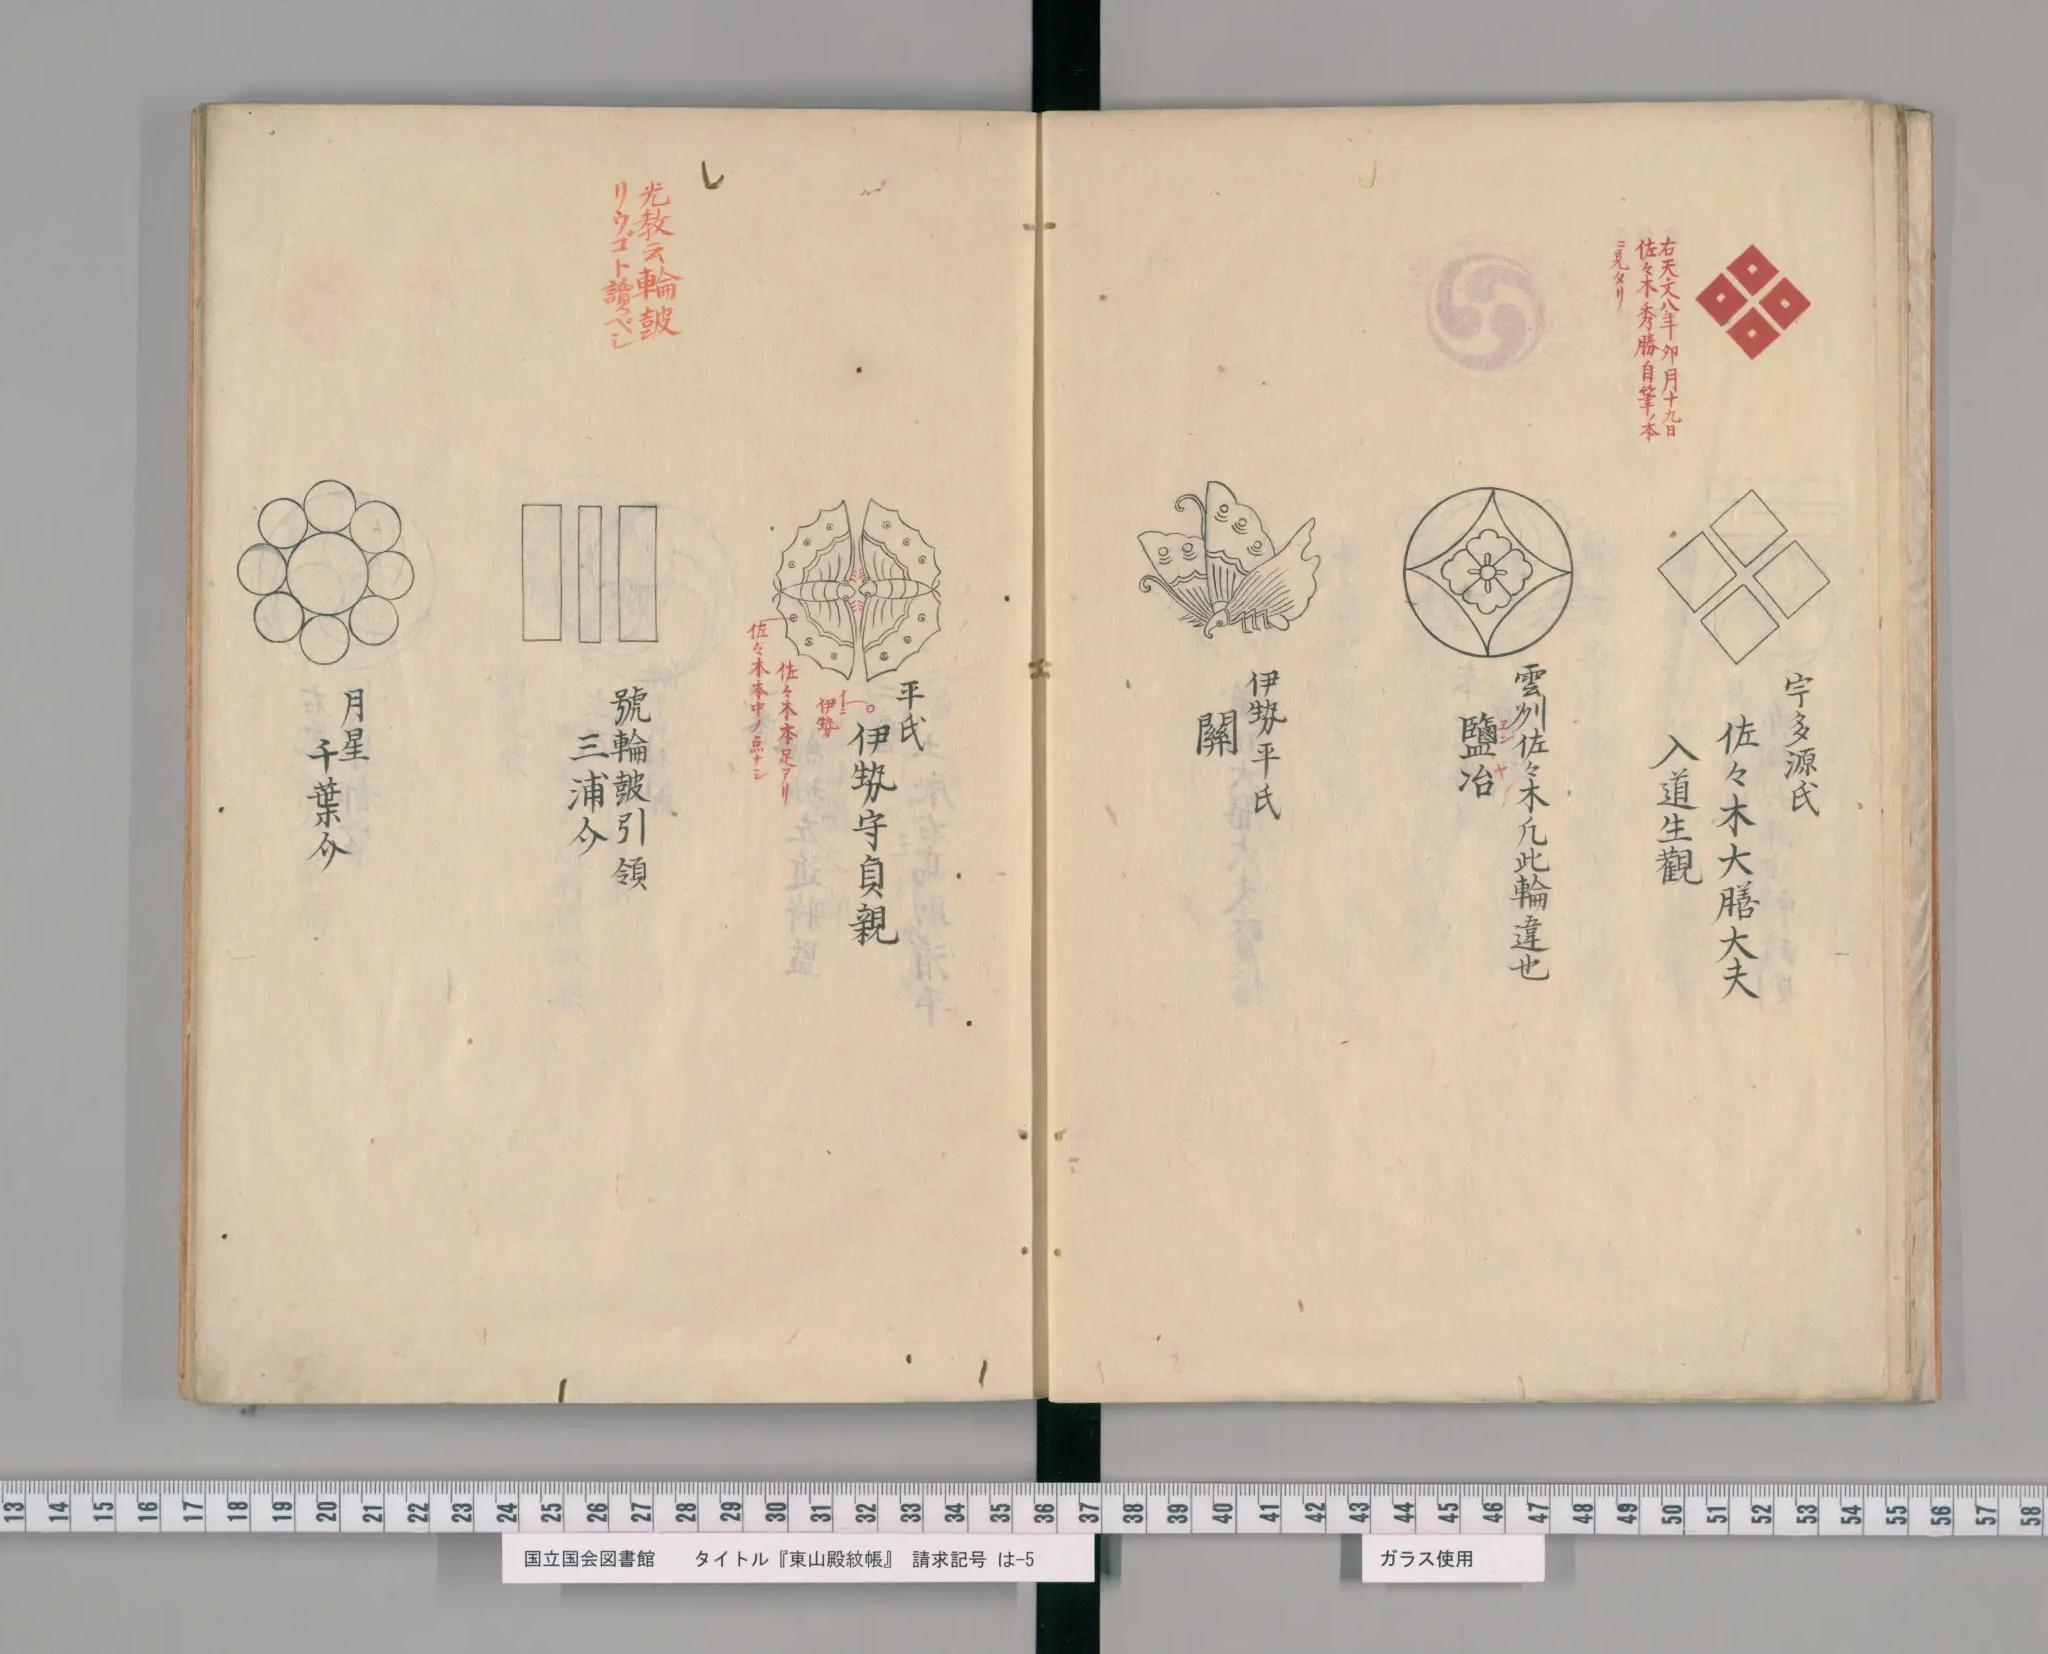 右天文八年卯月十九日
佐々木秀勝自筆ノ本
ニ見タリ
宇多源氏
佐々木大膳大夫
入道生觀
雲州佐々木凡此輪違也
鹽冶
エン
ヤ
伊勢平氏
關
平氏
伊勢守貞親
伊勢
佐々木本足アリ
佐々木本中ノ点ナシ
光教云輪鼓
リウゴト讀ベシ
號輪鼓引領
三浦介
月星
千葉介
13 14 15 16 17 18 19 20 21 22 23 24 25 26 27 28 29 30 31 32 33 34 35 36 37 38 39 40 41 42 43 44 45 46 47 48 49 50 51 52 53 54 55 56 57 58
国立国会図書館 タイトル『東山殿紋帳』 請求記号 は-5
ガラス使用